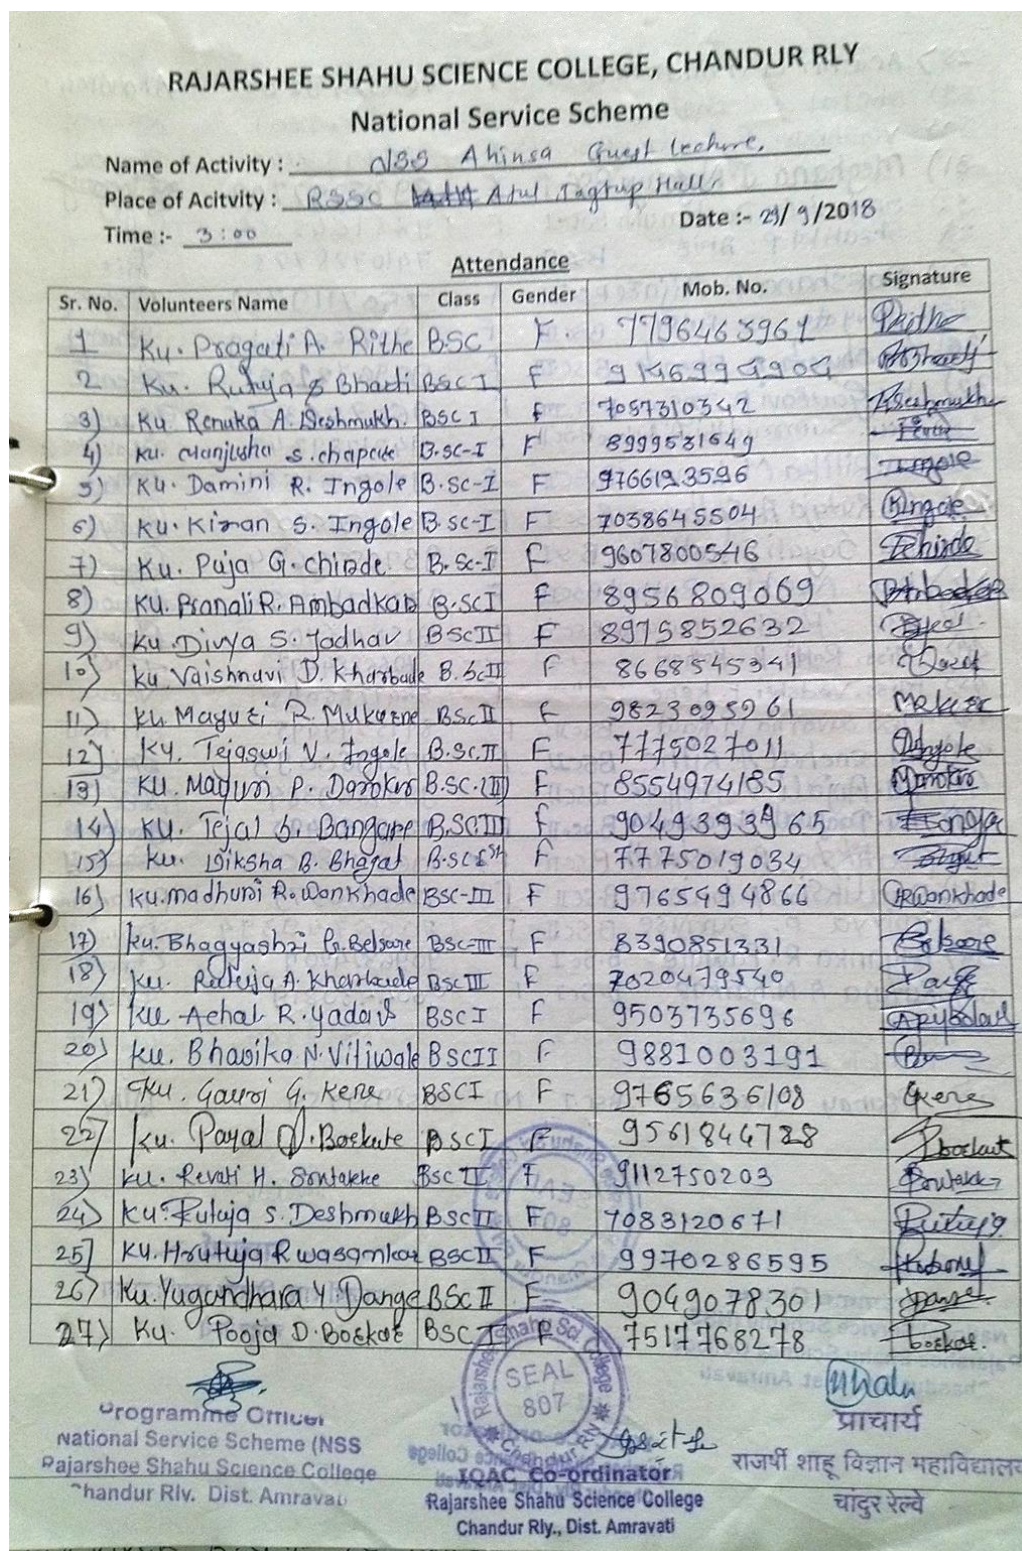 RAJARSHEE SHAHU SCIENCE COLLEGE, CHANDUR RLY
National Service Scheme
Name of Activity : NSS Ahinsa Guest lecture,
Place of Acitvity : RSSC Atul Jagtap Hall
Date :- 29/9/2018
Time :- 3:00
Attendance
Sr. No. Volunteers Name Class Gender Mob. No. Signature
1 Ku. Pragati A. Rithe BSC F. 7796463961
2 Ku. Rutuja S Bharti BSC I F
3) Ku. Renuka A. Deshmukh. BSC I F 7057310342 RDeshmukh
4) Ku. Manjusha S. chapake B.SC-I F 8999531649
5) Ku. Damini R. Ingole B.Sc-I F 9766193596 Ingole
6) Ku. Kiran S. Ingole B.sc-I F 7038645504 Kingole
7) Ku. Puja G. chirde B.Sc-I F 9607800546 Pchirde
8) KU. Pranali R. Ambadkar B.SCI F 8956809069
9) Ku. Divya S. Jadhav BSC II F 8975852632
10) Ku. Vaishnavi D. Kharbade B.SCII F 8668545341
11) Ku. Mayuri R. Mukurne BSC II F 9823095961
12) Ky. Tejaswi V. Ingole B.SC.II F 7775027011 Ingole
13) KU. Mayuri P. Darokar B.SC.(II) F 8554974185
14) KU. Tejal G. Bangare B.SCIII F 9049393965
15) Ku. Diksha B. Bhagat F 7775019034
16) Ku.madhuri R. Wankhade BSC-III F 9765494866 RWankhade
17) Ku. Bhagyashri G. Belsare BSC-III F 8390851331 Belsare
18) Ku. Rutuja A. Kharbade BSC III F 7020479540
19) Ku Achal R. yadav BSC I F 9503735696
20) Ku. Bhavika N. Vitiwale BSCII F 9881003191
21) Ku. Gauri G. Kene BSCI F 9765636108 Gkene
22) Ku. Payal D. Boekute BSCI F 9561844728
23) Ku. Revati H. Sontakke BSC II F 9112750203 Sontakke
24) Ku. Rutuja S. Deshmukh BSC II F 7083120671 Rutuja
25] Ku. Hrutuja R wasamkar BSC II F 9970286595
26) Ku. Yugandhara Y. Dange BSC II F 9049078301
27) Ku. Pooja D. Boekar BSC F 7517768278
Programme Officer
National Service Scheme (NSS
Rajarshee Shahu Science College
Chandur Rly. Dist. Amravati
Rajarshee Shahu Sci. College
SEAL
807
Chandur Rly
IQAC Co-ordinator
Rajarshee Shahu Science College
Chandur Rly., Dist. Amravati
प्राचार्य
राजर्षी शाहू विज्ञान महाविद्यालय
चांदुर रेल्वे